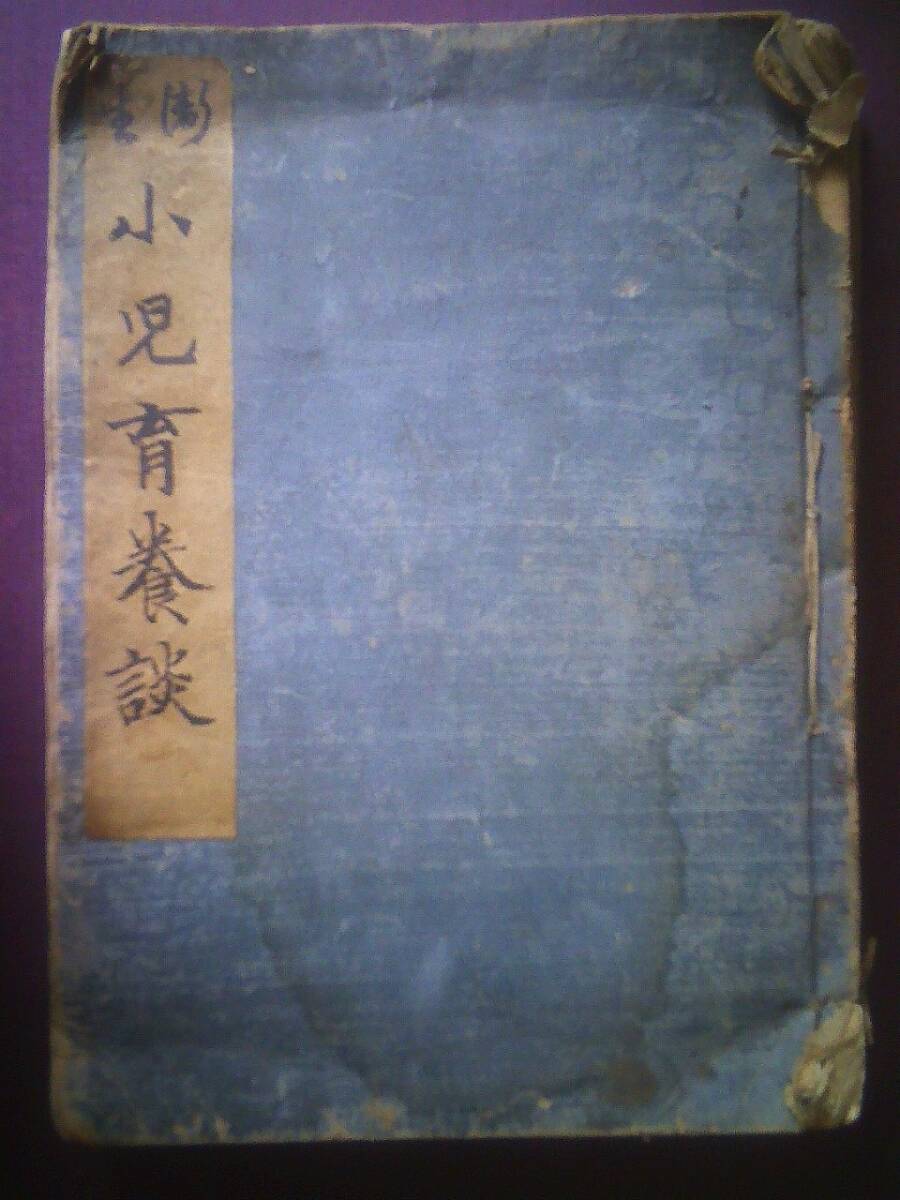 衛生
小児育養談